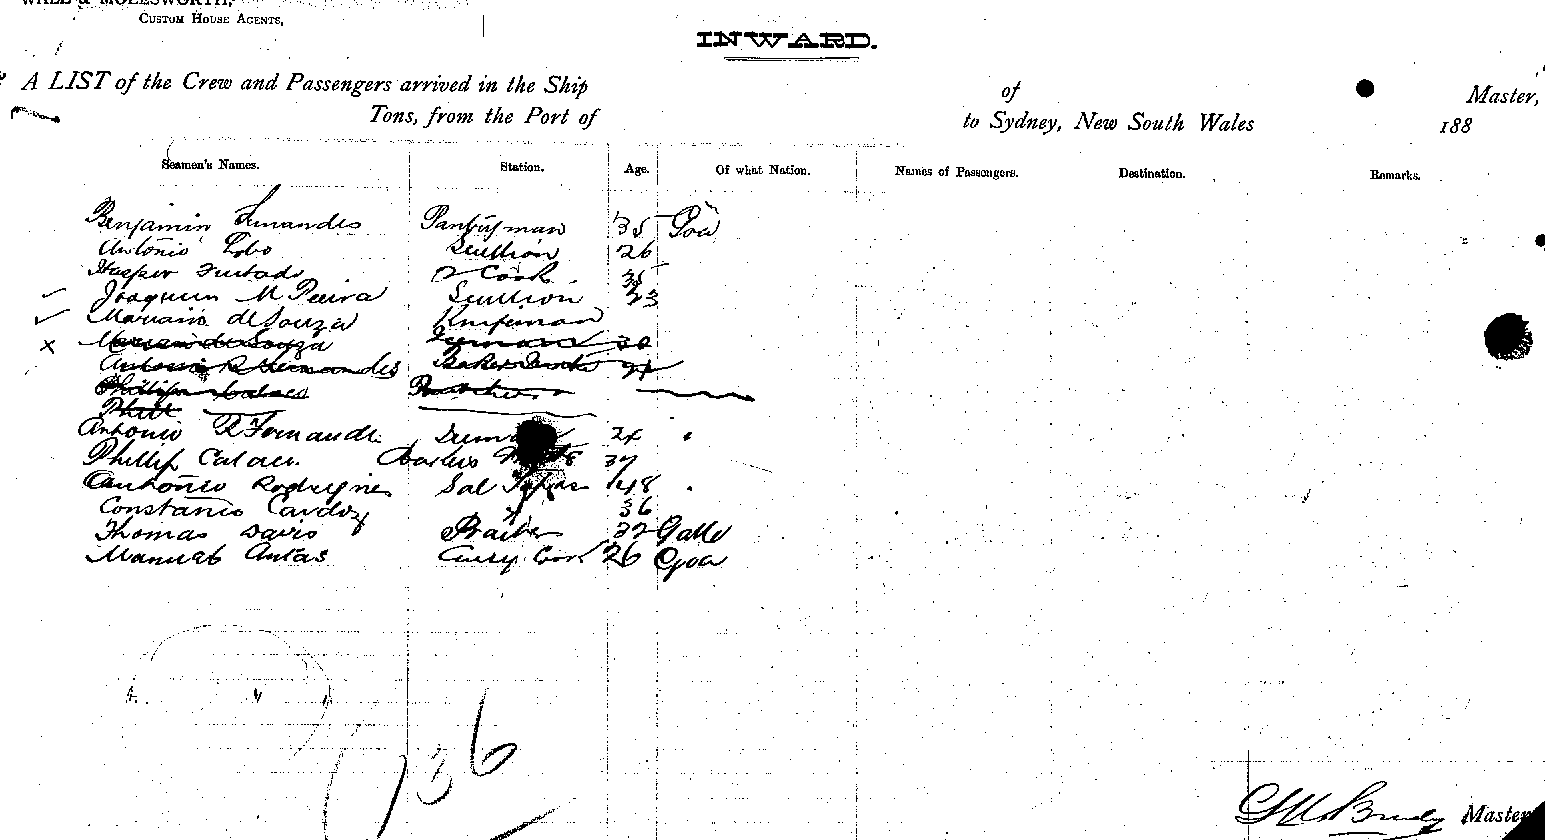 WALE & MOLESWORTH,
CUSTOM HOUSE AGENTS,
INWARD.
A LIST of the Crew and Passengers arrived in the Ship of Master,
Tons, from the Port of to Sydney, New South Wales 188
Seamen's Names. Station. Age. Of what Nation. Names of Passengers. Destination. Remarks.
Benjamin Fernandes Pantryman 35 Goa
Antonio Lobo Scullion 26
Furtado Cook 35
Joaquim M Pereira Scullion 23
Mariano de Souza Knifeman
Mariano de Souza 30
Antonio R Fernandes Baker
Phillip Calaces Butcher
Phill
Antonio R Fernandes 24
Phillip Calaces 37
Antonio Rodrigues 48
Constanco Cardoz 36
Thomas Davis 32 Galle
Manuel Antas Curry Cook 26 Goa
136
Master